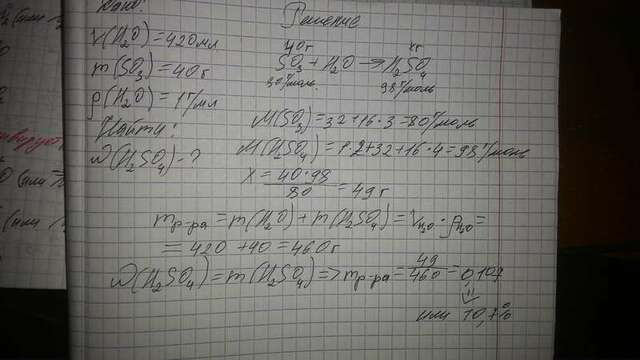 Дано:
V(H₂O)=420мл
m(SO₃)=40г
ρ(H₂O)=1г/мл
Найти:
ω(H₂SO₄)-?
Решение
40г xг
SO₃+H₂O→H₂SO₄
80г/моль 98г/моль
M(SO₃)=32+16·3=80г/моль
M(H₂SO₄)=1·2+32+16·4=98г/моль
x=40·98/80=49г
mр-ра=m(H₂O)+m(H₂SO₄)=VH₂O·ρH₂O=
=420+40=460г
ω(H₂SO₄)=m(H₂SO₄)=>mр-ра=49/460=0,107
или 10,7%